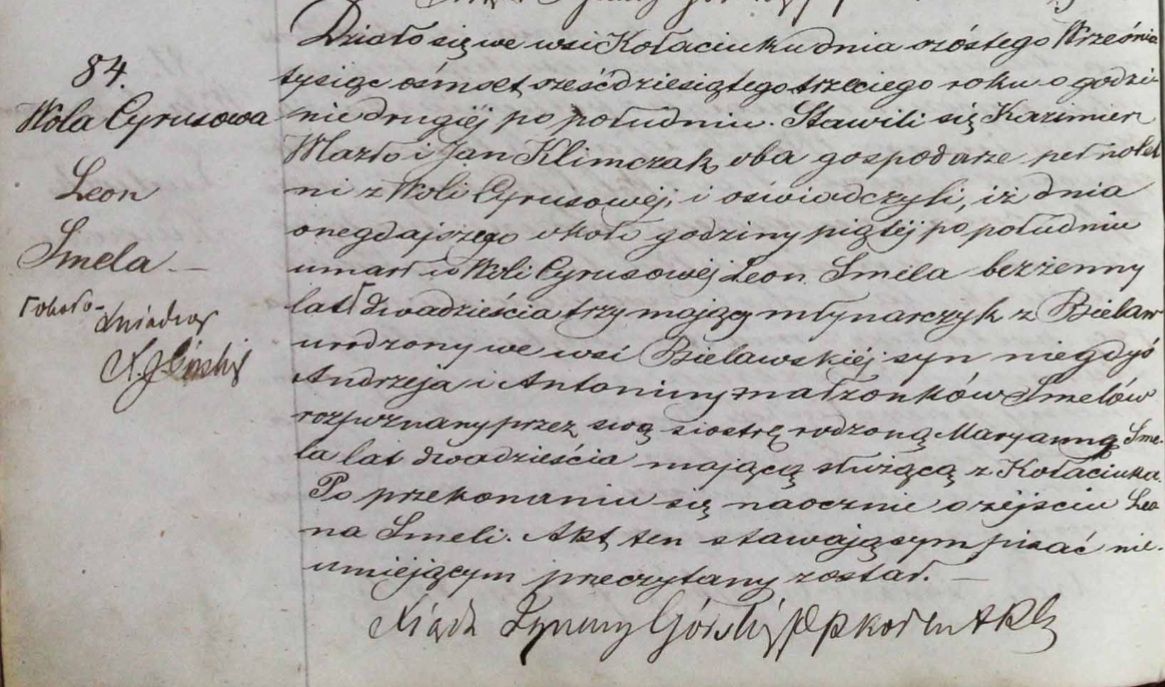 84.
Wola Cyrusowa
Leon
Smela. —
około
Działo się we wsi Kołaciuku dnia szóstego Września
tysiąc ośmset sześćdziesiątego trzeciego roku o godzi-
nie drugiéj po południu. Stawili się Kazimierz
Mazło i Jan Klimczak, oba gospodarze pełnolet
ni z Woli Cyrusowéj, i oświadczyli, iż dnia
onegdajszego około godziny piątéj po południu
umarł w Woli Cyrusowéj Leon Smela bezżenny
lat dwadzieścia trzy mający młynarczyk z Bielaw
urodzony we wsi Bielawskiéj syn niegdyś
Andrzeja i Antoniny małżonków Smelów
rozpoznany przez swą siostrę rodzoną Maryannę Sme-
la lat dwadzieścia mającą służącą z Kołaciuka.
Po przekonaniu się naocznie o zejściu Leo
na Smeli. Akt ten stawającym pisać nie-
umiejącym przeczytany został. —
Xiądz Ignacy Górski